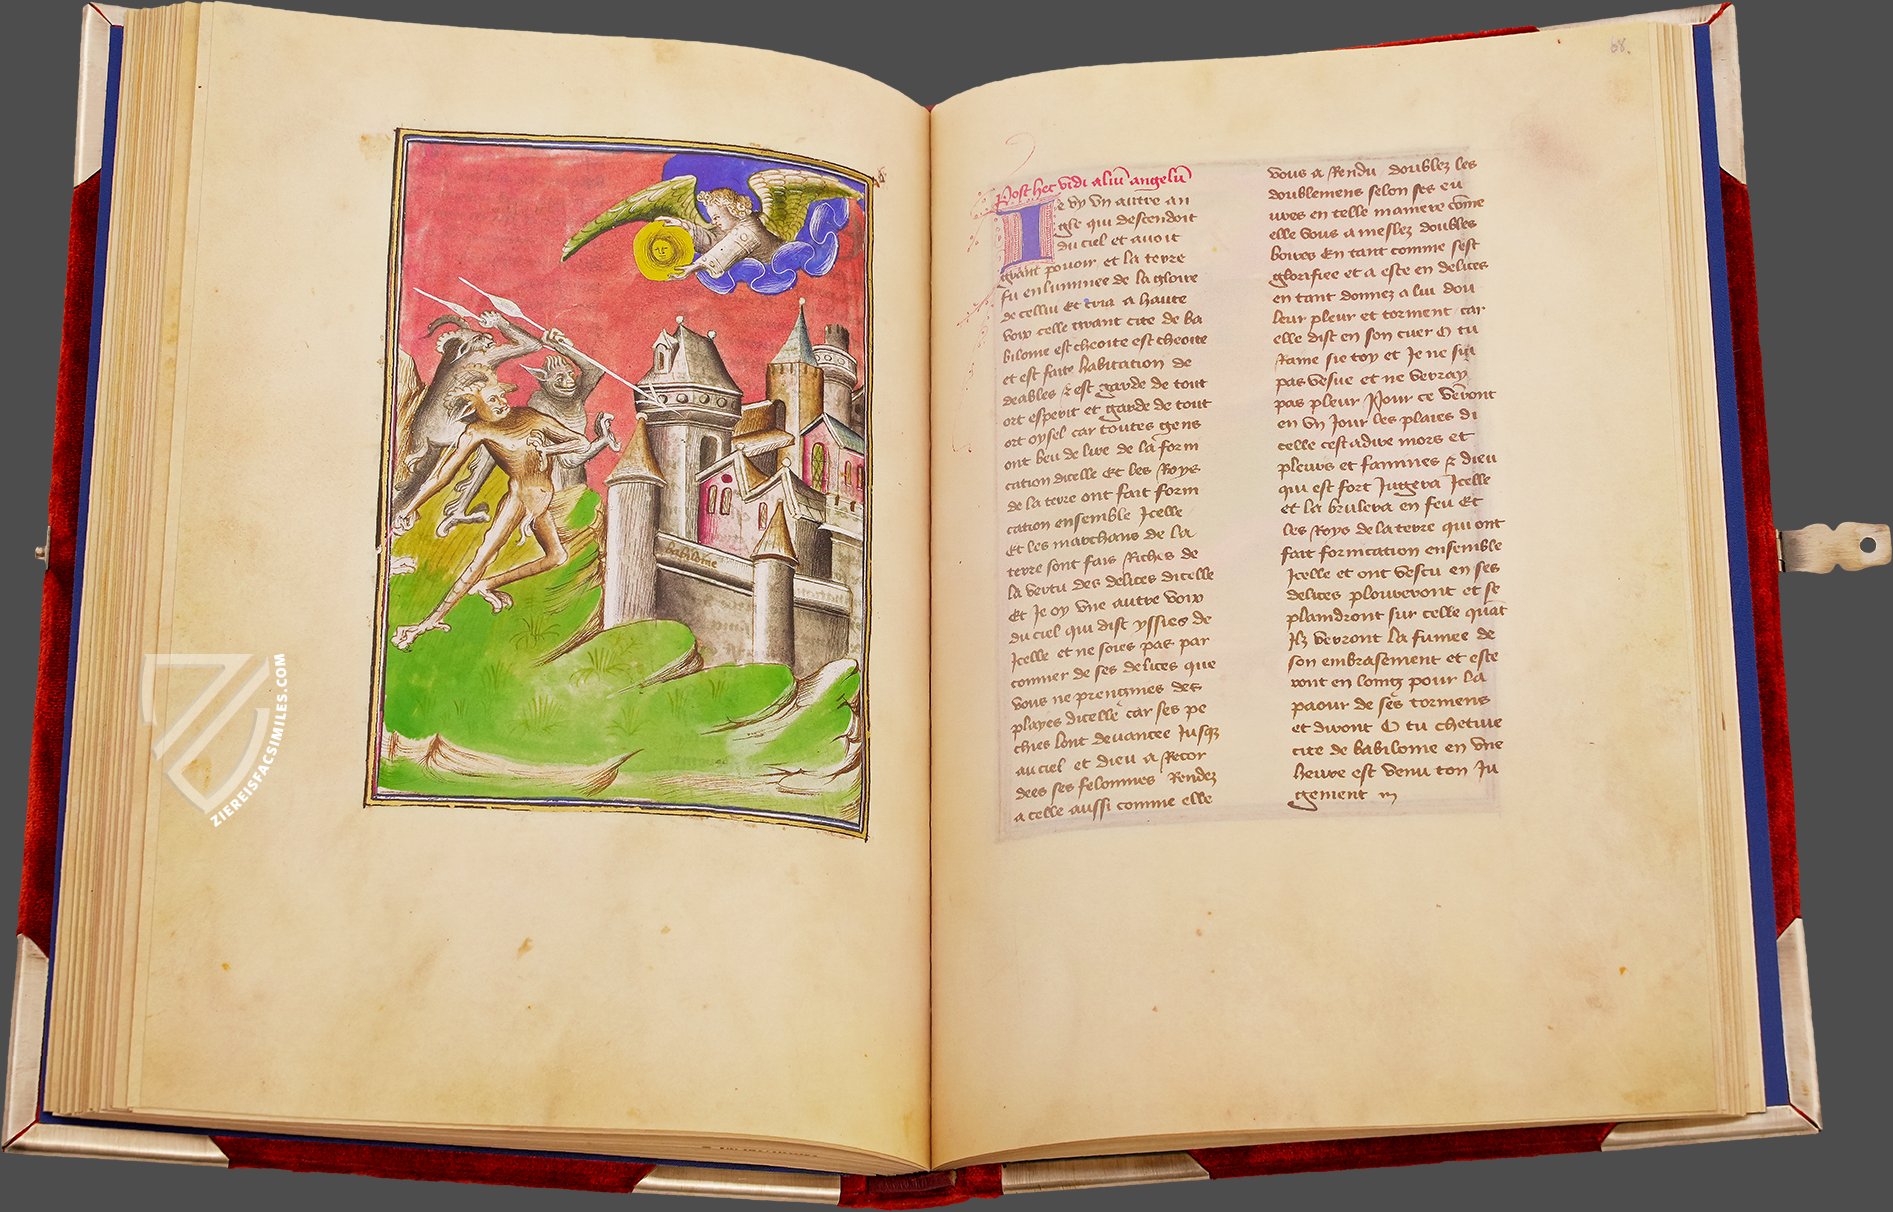 babilone
ZIEREISFACSIMILES.COM
68.
Post hec vidi aliū angelū
Ie vy vn autre an
gle qui descendoit
du ciel et auoit
grant pouoir et la terre
fu enluminee de la gloire
de cellui Et cria a haute
voix celle grant cite de ba
bilone est cheoite est cheoite
et est faite habitacion de
deables & est garde de tout
ort esperit et garde de tout
ort oysel car toutes gens
ont beu de lire de la form
cation dicelle Et les Roys
de la terre ont fait form
cation ensemble Icelle
Et les marchans de la
terre sont fais Riches de
la vertu des delices dicelle
Et Ie oy vne autre voix
du ciel qui dist yssies de
Icelle et ne soies pas par
conner de ses delices que
vous ne prengnies des
playes dicelle car ses pe
chies sont deuancee Iusqz
au ciel et dieu a Recor
dees ses felonnies Rendez
a celle aussi comme elle
vous a Rendu doublez les
doublemens selon ses eu
ures en telle maniere cōme
elle vous a meslez doubles
boires En tant comme sest
glorifiee et a este en delices
en tant donnez a lui dou
leur pleur et torment car
elle dist en son cuer O tu
Rame sie toy et Ie ne sui
pas vesue et ne verray
pas pleur Pour ce vēront
en vn Iour les plaies di
celle cest adire mors et
pleurs et famines & dieu
qui est fort Iugera Icelle
et la brulera en feu Et
les Roys de la terre qui ont
fait fornication ensemble
Icelle et ont vescu en ses
delices ploureront et se
plandront sur celle quāt
Ilz verront la fumee de
son embrasement et este
ront en loing pour la
paour de ses tormens
et diront O tu chetiue
cite de babilone en vne
heure est venu ton Iu
gement